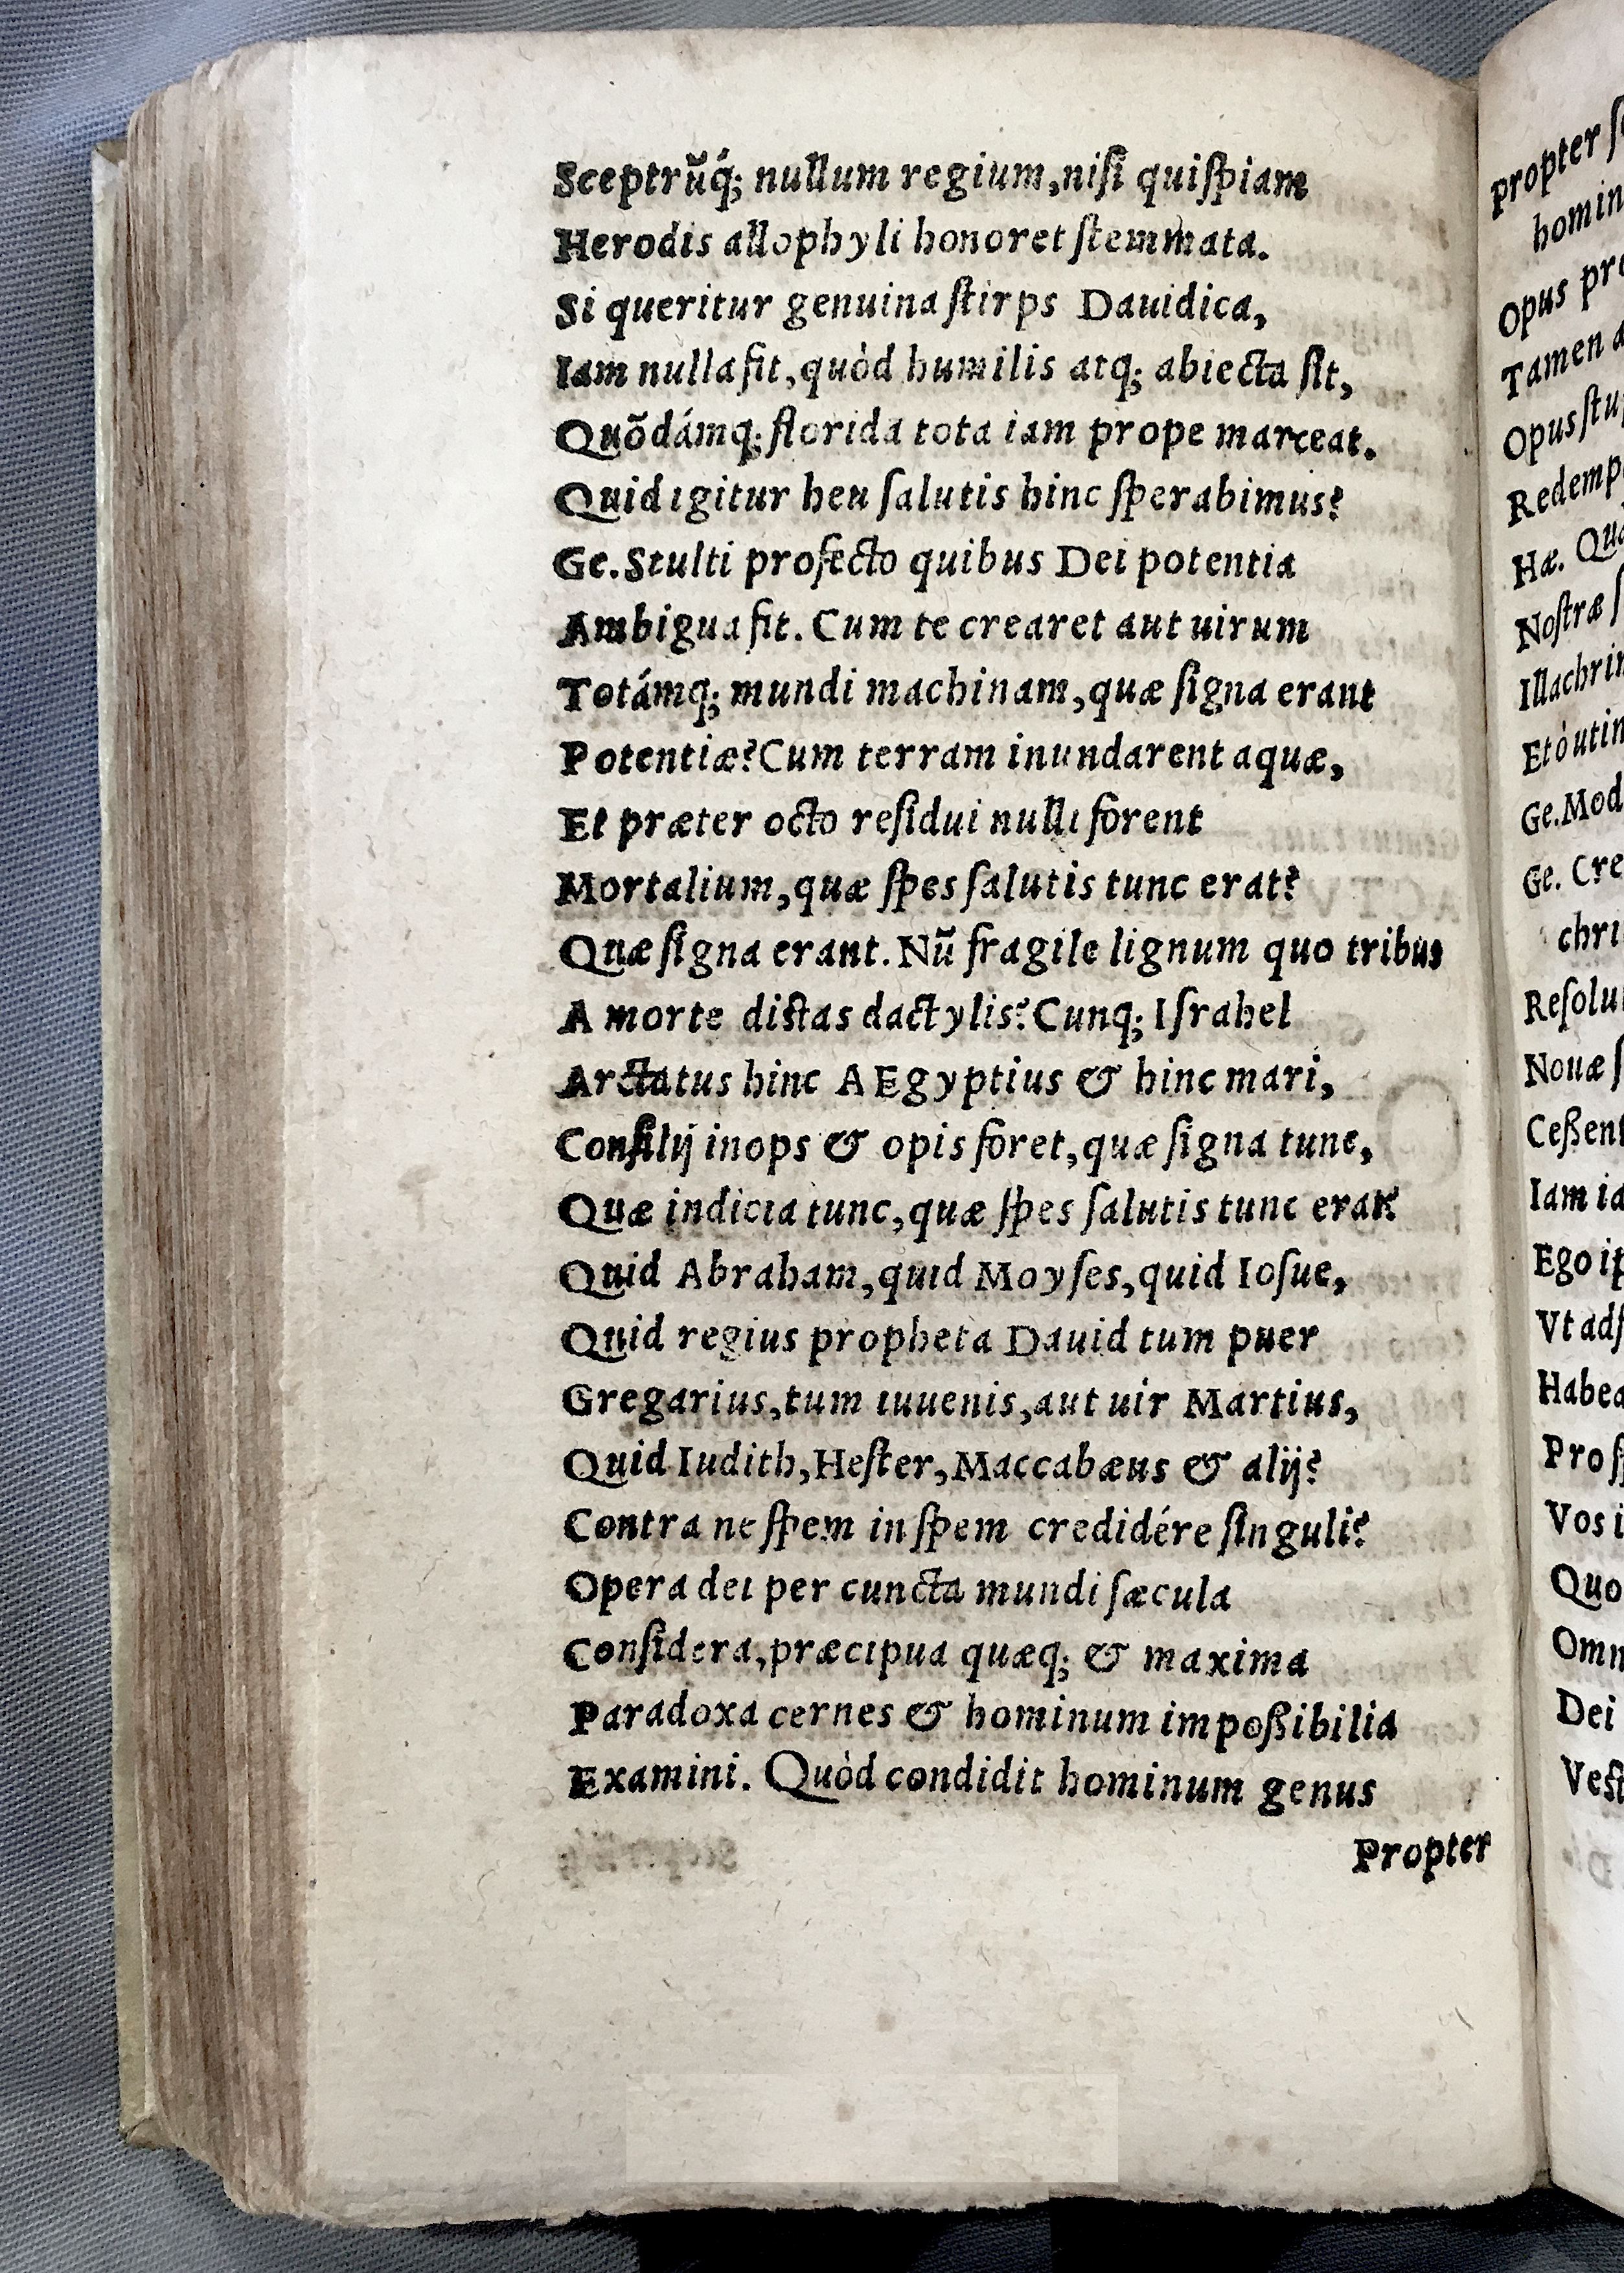 Sceptrũq́; nullum regium,niſi quiſpiam
Herodis allophyli honoret ſtemmata.
Si queritur genuina ſtirps Dauidica,
Iam nulla fit,quòd humilis atq; abiecta ſit,
Quõdámq; florida tota iam prope marceat.
Quid igitur heu ſalutis hinc ſperabimus?
Ge.Stulti profecto quibus Dei potentia
Ambigua fit. Cum te crearet aut uirum
Totámq; mundi machinam,quæ ſigna erant
Potentiæ?Cum terram inundarent aquæ,
Et præter octo reſidui nulli forent
Mortalium,quæ ſpes ſalutis tunc erat?
Quæ ſigna erant. Nũ fragile lignum quo tribus
A morte diſtas dactylis?Cunq; Iſrahel
Arctatus hinc AEgyptius & hinc mari,
Conſilij inops & opis foret,quæ ſigna tunc,
Quæ indicia tunc,quæ ſpes ſalutis tunc erat?
Quid Abraham,quid Moyſes,quid Ioſue,
Quid regius propheta Dauid tum puer
Gregarius,tum iuuenis,aut uir Martius,
Quid Iudith,Heſter,Maccabæus & alij?
Contra ne ſpem in ſpem credidére ſinguli?
Opera dei per cuncta mundi ſæcula
Conſidera,præcipua quæq; & maxima
Paradoxa cernes & hominum impoßibilia
Examini. Quòd condidit hominum genus
Propter
propter
homin
Opus
Tamen
Opus
Redemp
Hæ.
Noſtræ
Illachrim
Et ò utin
Ge.Mod
Ge. Cre
chri
Reſolu
Nouæ
Ceßent
Iam
Ego
Vt
Habea
Pro
Vos
Quo
Omn
Dei